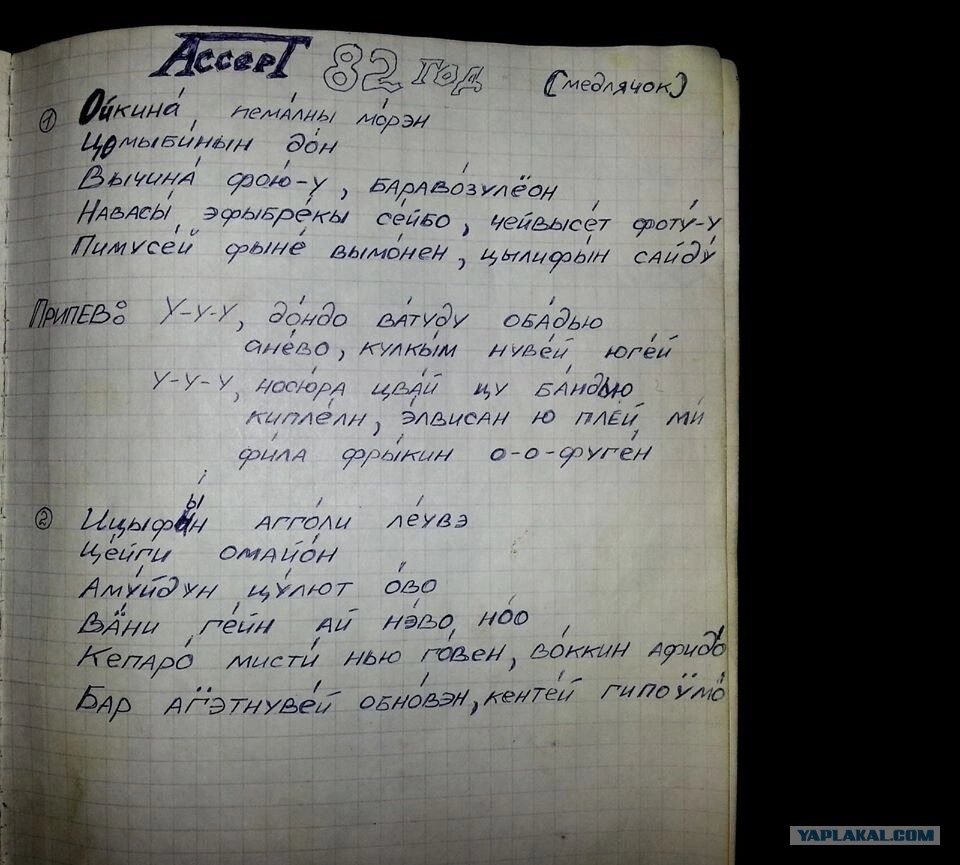 АссерТ 82 год (медлячок)
① Ойкина́ пема́лны мо́рэн
Цомыби́нын до́н
Вычина́ фою́-у, барово́зулёон
Навасы́ эфыбре́кы се́йбо, чейвысе́т фоту́-у
Пимусе́й фыне́ вымо́нен, цылифы́н сайду́
Припев: У-у-у, до́ндо ва́туду оба́дью
ане́во, кулкы́м нуве́й юге́й
У-у-у, носю́ра цва́й цу ба́ндью
кипле́лн, э́лвисан ю пле́й ми́
фи́ла фры́кин о-о-фуге́н
② Ицыфы́н агго́ли ле́увэ
Це́йги омайо́н
Аму́йдун цу́лют о́во
Вäни ге́йн ай нэ́во, но́о
Кепаро́ мисти́ нью го́вен, во́ккин афидо́
Бар агэтнуве́й обно́вэн, кенте́й
YAPLAKAL.COM